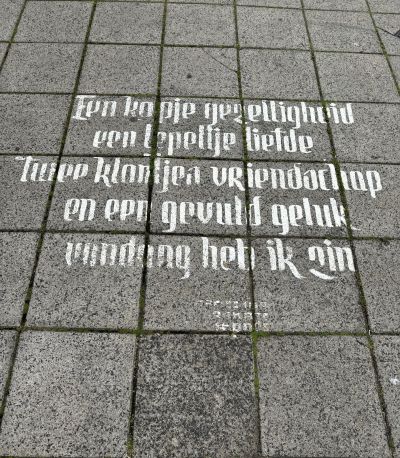 Een kopje gezelligheid
een lepeltje liefde
twee klontjes vriendschap
en een gevuld geluk
vandaag heb ik zin